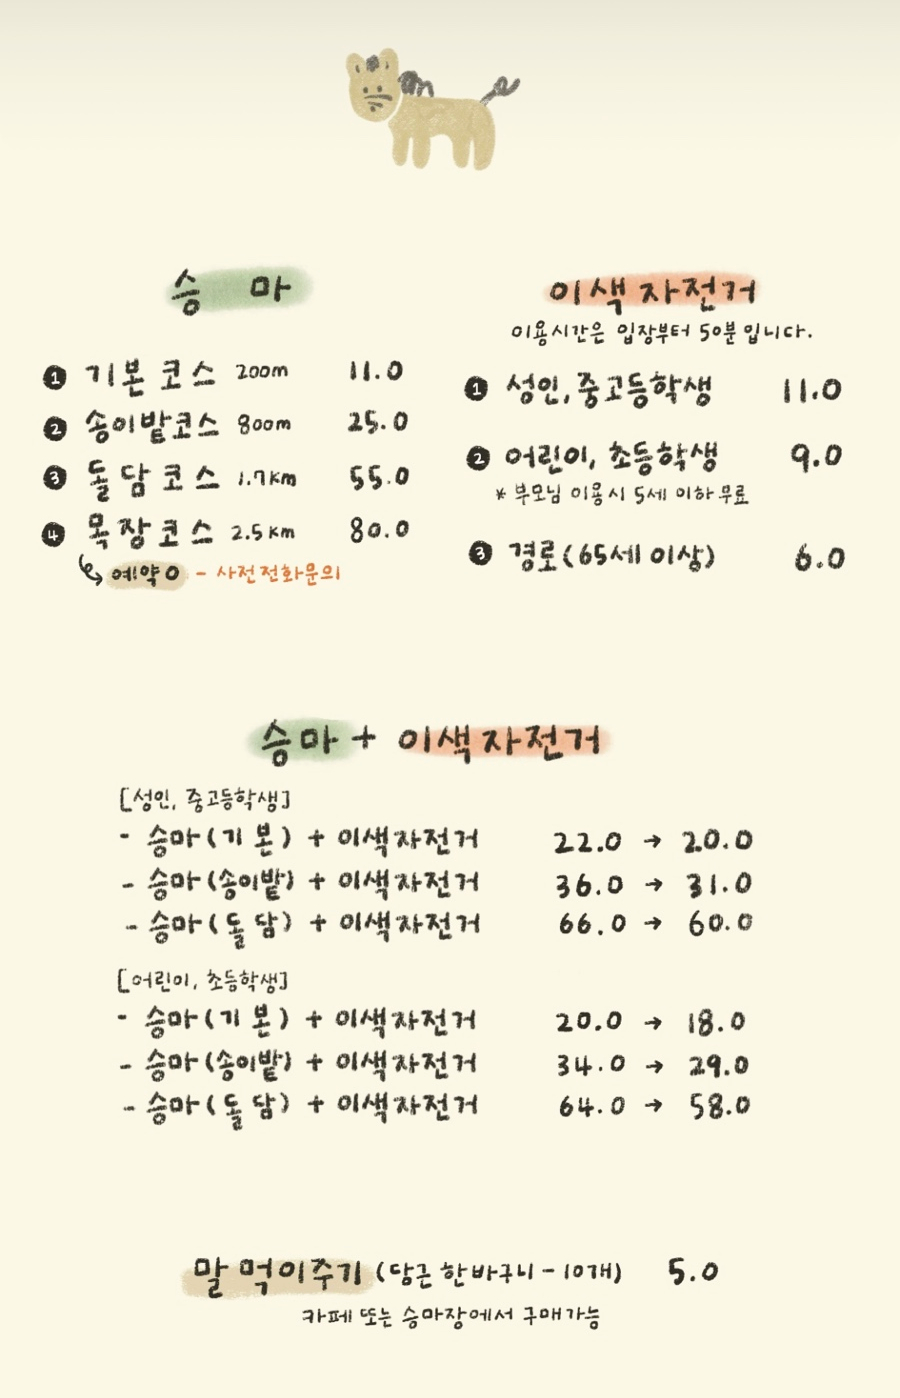 승 마
❶ 기본 코스 200m 11.0
❷ 송이밭코스 800m 25.0
❸ 돌담코스 1.7km 55.0
❹ 목장코스 2.5km 80.0
예약O - 사전전화문의
이색자전거
이용시간은 입장부터 50분입니다.
❶ 성인, 중고등학생 11.0
❷ 어린이, 초등학생 9.0
* 부모님 이용시 5세 이하 무료
❸ 경로(65세 이상) 6.0
승마 + 이색자전거
[성인, 중고등학생]
- 승마(기 본) + 이색자전거 22.0 → 20.0
- 승마(송이밭) + 이색자전거 36.0 → 31.0
- 승마(돌 담) + 이색자전거 66.0 → 60.0
[어린이, 초등학생]
- 승마(기 본) + 이색자전거 20.0 → 18.0
- 승마(송이밭) + 이색자전거 34.0 → 29.0
- 승마(돌 담) + 이색자전거 64.0 → 58.0
말 먹이주기 (당근 한바구니 - 10개) 5.0
카페 또는 승마장에서 구매가능